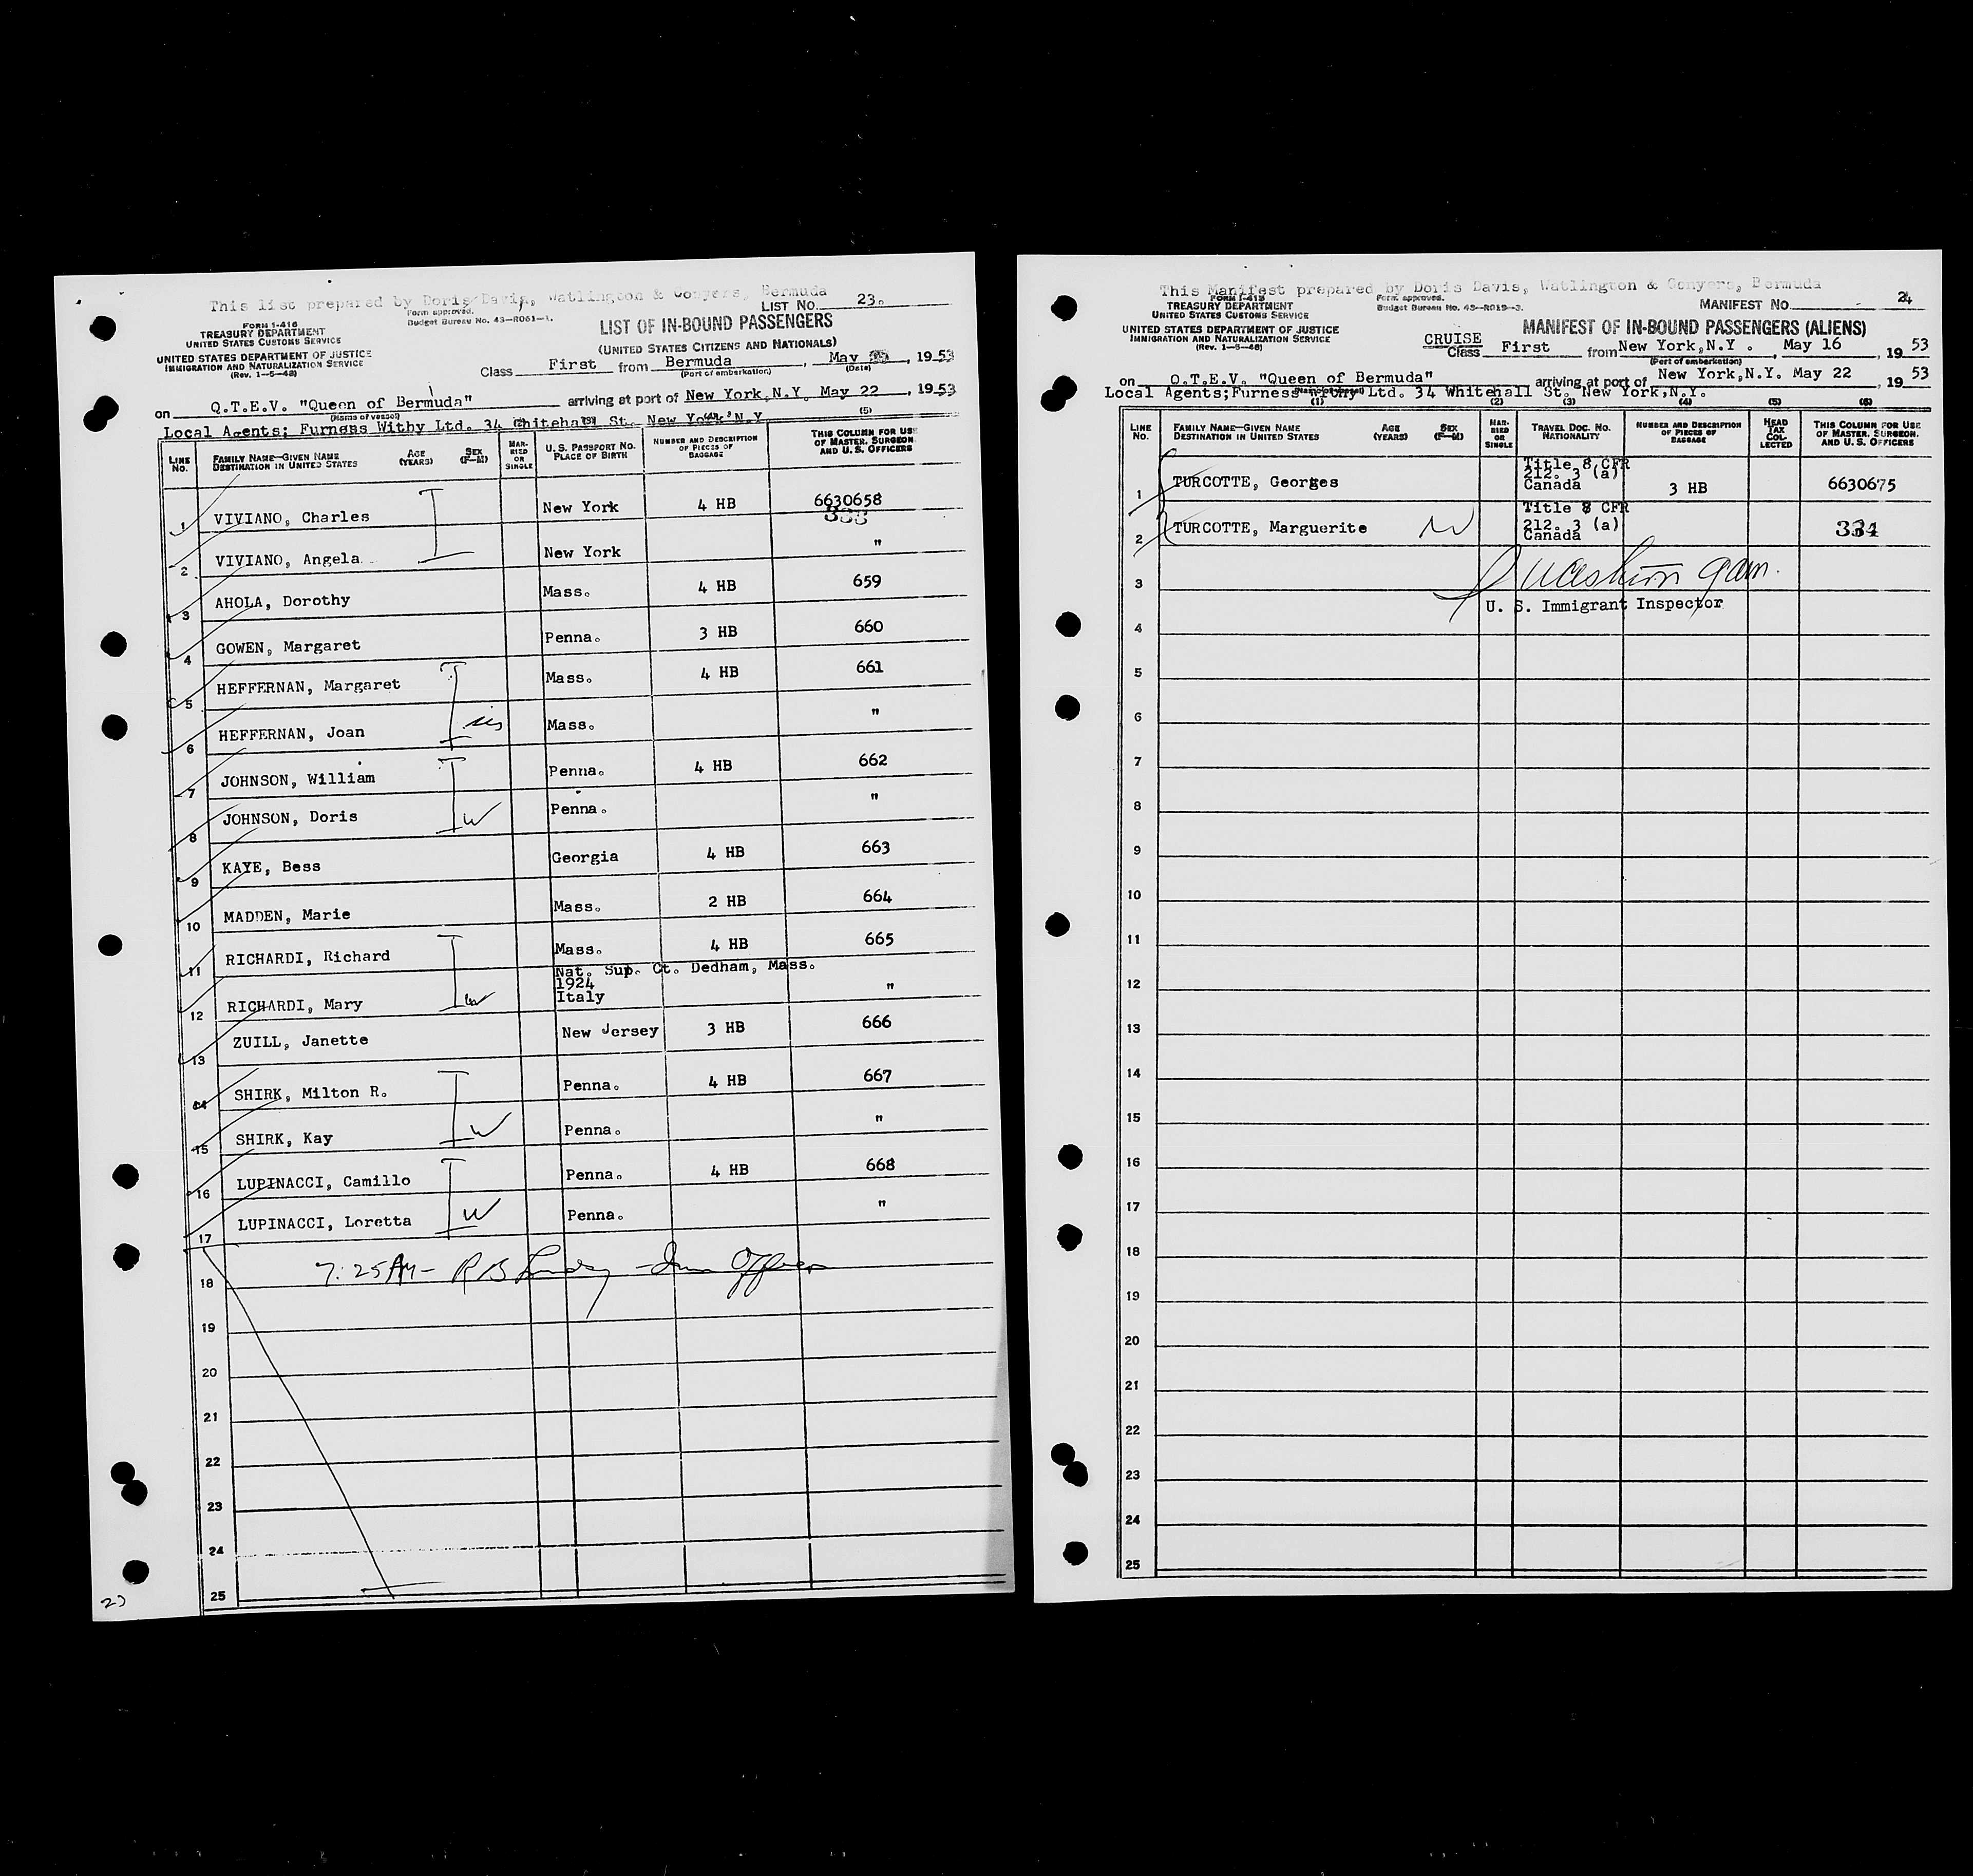 This list prepared by Doris Davis, Watlington & Conyers, Bermuda
LIST NO. 23.
Form approved.
Budget Bureau No. 43-R061-1.
FORM I-416
TREASURY DEPARTMENT
UNITED STATES CUSTOMS SERVICE
UNITED STATES DEPARTMENT OF JUSTICE
IMMIGRATION AND NATURALIZATION SERVICE
(Rev. 1-5-48)
LIST OF IN-BOUND PASSENGERS
(UNITED STATES CITIZENS AND NATIONALS)
Class First from Bermuda, May , 1953
(Port of embarkation) (Date)
on Q.T.E.V. "Queen of Bermuda" arriving at port of New York, N.Y. May 22, 1953
(Name of vessel)
Local Agents; Furness Withy Ltd. 34 Whitehall St. New York, N.Y
(5)
LINE NO. FAMILY NAME—GIVEN NAME DESTINATION IN UNITED STATES AGE (YEARS) SEX (F-M) MARRIED OR SINGLE U. S. PASSPORT NO. PLACE OF BIRTH NUMBER AND DESCRIPTION OF PIECES OF BAGGAGE THIS COLUMN FOR USE OF MASTER, SURGEON, AND U. S. OFFICERS
1 VIVIANO, Charles New York 4 HB 6630658
333
2 VIVIANO, Angela New York "
3 AHOLA, Dorothy Mass. 4 HB 659
4 GOWEN, Margaret Penna. 3 HB 660
5 HEFFERNAN, Margaret Mass. 4 HB 661
6 HEFFERNAN, Joan sis Mass. "
7 JOHNSON, William Penna. 4 HB 662
8 JOHNSON, Doris W Penna. "
9 KAYE, Bess Georgia 4 HB 663
10 MADDEN, Marie Mass. 2 HB 664
11 RICHARDI, Richard Mass. 4 HB 665
Nat. Sup. Ct. Dedham, Mass.
1924
12 RICHARDI, Mary W Italy "
13 ZUILL, Janette New Jersey 3 HB 666
14 SHIRK, Milton R. Penna. 4 HB 667
15 SHIRK, Kay W Penna. "
16 LUPINACCI, Camillo Penna. 4 HB 668
17 LUPINACCI, Loretta W Penna. "
18 7:25 AM - R B - Imm Officer
19
20
21
22
23
24
25
23
This Manifest prepared by Doris Davis, Watlington & Conyers, Bermuda
FORM I-415
TREASURY DEPARTMENT
UNITED STATES CUSTOMS SERVICE
Form approved.
Budget Bureau No. 43-R019-3.
MANIFEST NO. 24
UNITED STATES DEPARTMENT OF JUSTICE
IMMIGRATION AND NATURALIZATION SERVICE
(Rev. 1-5-48)
MANIFEST OF IN-BOUND PASSENGERS (ALIENS)
CRUISE
Class First from New York, N.Y. , May 16, 1953
(Port of embarkation)
on Q.T.E.V. "Queen of Bermuda" arriving at port of New York, N.Y. May 22, 1953
Local Agents; Furness Withy Ltd. 34 Whitehall St. New York, N.Y.
(1) (2) (3) (4) (5) (6)
LINE NO. FAMILY NAME—GIVEN NAME DESTINATION IN UNITED STATES AGE (YEARS) SEX (F-M) MARRIED OR SINGLE TRAVEL DOC. NO. NATIONALITY NUMBER AND DESCRIPTION OF PIECES OF BAGGAGE HEAD TAX COLLECTED THIS COLUMN FOR USE OF MASTER, SURGEON, AND U. S. OFFICERS
Title 8 CFR
212. 3 (a)
1 TURCOTTE, Georges Canada 3 HB 6630675
Title 8 CFR
2 TURCOTTE, Marguerite W 212. 3 (a) 334
Canada
3 9am.
U. S. Immigrant Inspector
4
5
6
7
8
9
10
11
12
13
14
15
16
17
18
19
20
21
22
23
24
25